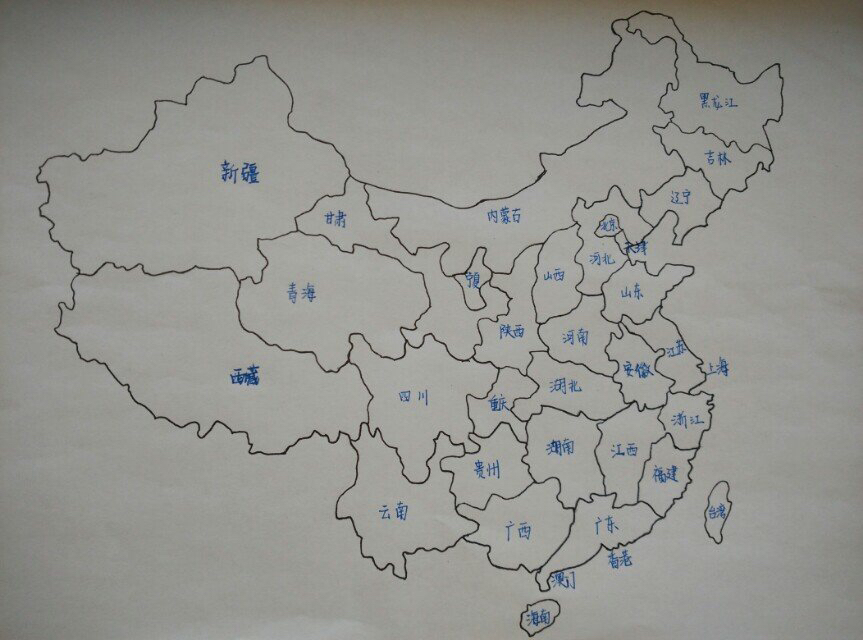 黑龙江
吉林
辽宁
新疆
甘肃
内蒙古
北京
天津
河北
宁夏
山西
青海
山东
陕西
河南
江苏
安徽
上海
西藏
四川
重庆
湖北
浙江
湖南
江西
贵州
福建
云南
广西
广东
台湾
香港
澳门
海南